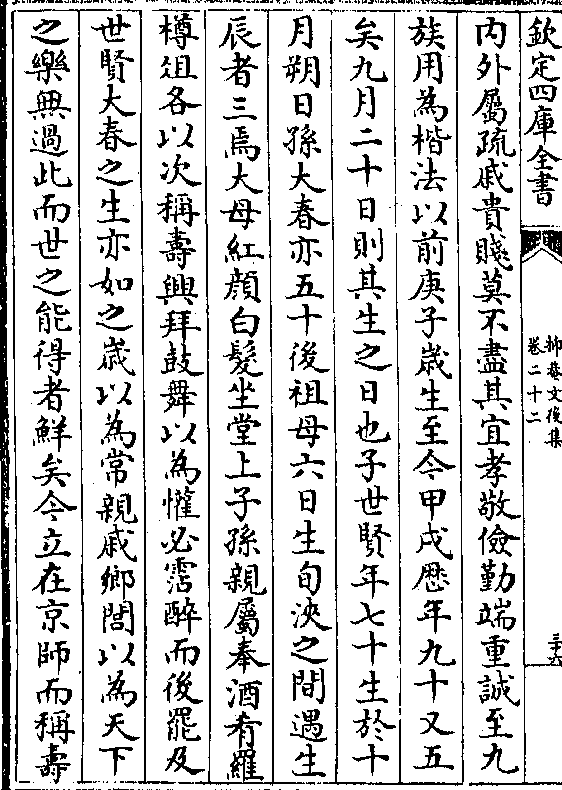 欽定四庫全書
抑菴文後集
卷二十二
三十六
內外屬疏戚貴賤莫不盡其宜孝敬儉勤端重誠至九
族用為楷法以前庚子歲生至今甲戌歴年九十又五
矣九月二十日則其生之日也子世賢年七十生於十
月朔日孫大春亦五十後祖母六日生旬浹之間遇生
辰者三焉大母紅顔白髮坐堂上子孫親屬奉酒肴羅
樽俎各以次稱壽興拜鼓舞以為懽必霑醉而後罷及
世賢大春之生亦如之歳以為常親戚鄉閭以為天下
之樂無過此而世之能得者鮮矣今立在京師而稱壽